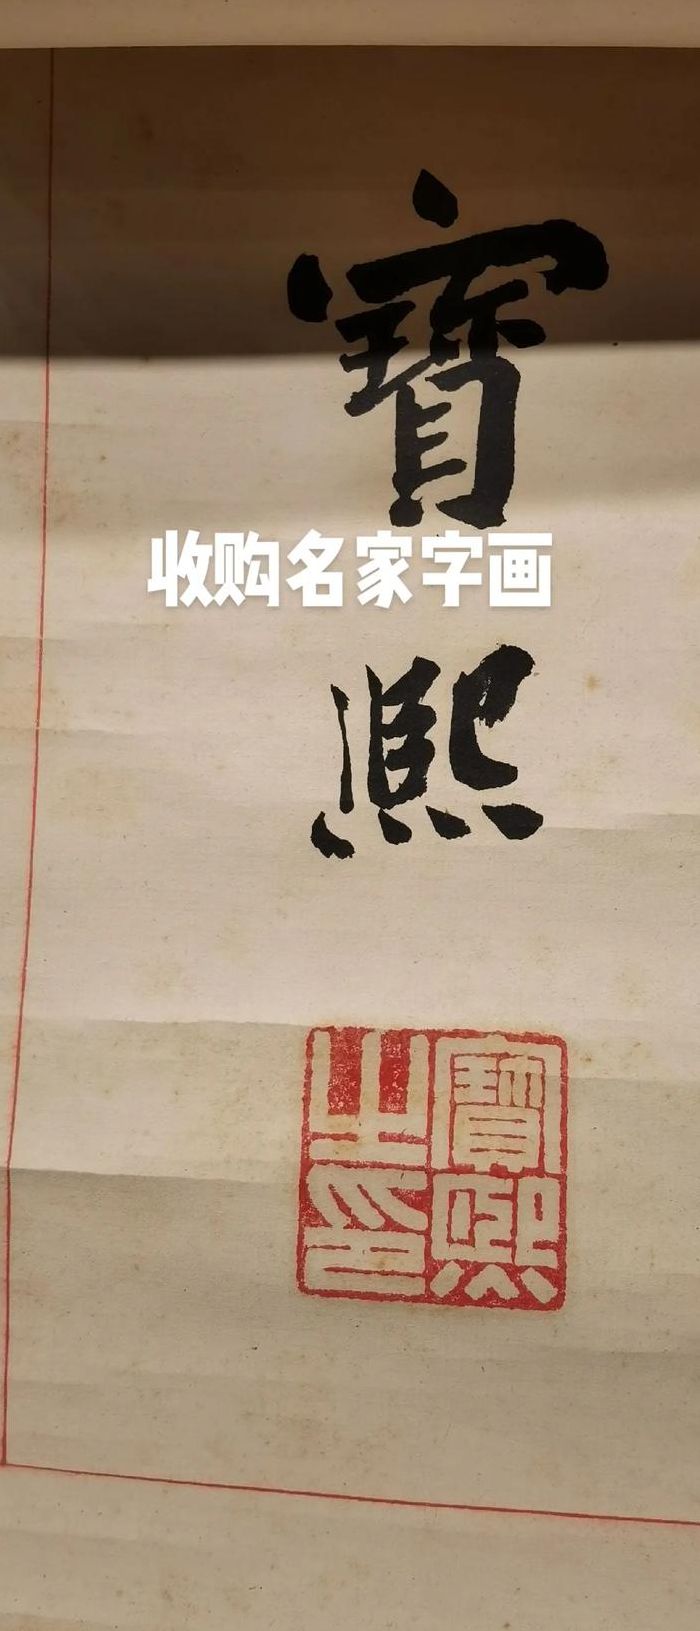 寶熙
收购名家字画
寶熙
之印